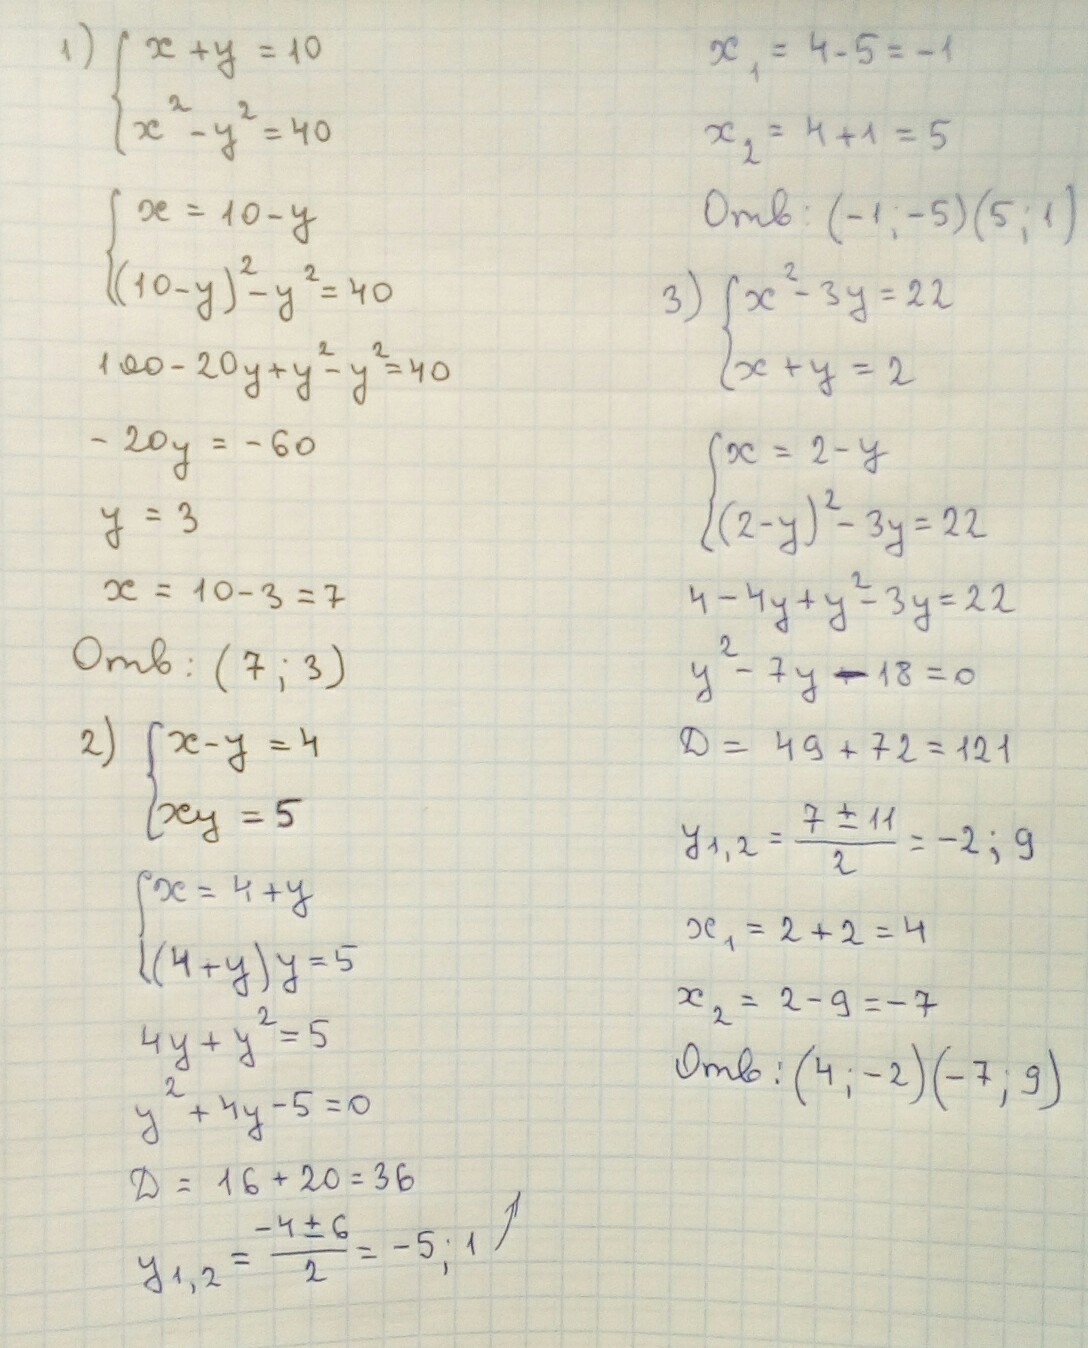 1) { x + y = 10
x² - y² = 40
{ x = 10 - y
(10 - y)² - y² = 40
100 - 20y + y² - y² = 40
- 20y = - 60
y = 3
x = 10 - 3 = 7
Отв: (7; 3)
2) { x - y = 4
xy = 5
{ x = 4 + y
(4 + y) y = 5
4y + y² = 5
y² + 4y - 5 = 0
D = 16 + 20 = 36
y₁,₂ = (-4 ± 6)/2 = -5; 1 ↗
x₁ = 4 - 5 = -1
x₂ = 4 + 1 = 5
Отв: (-1; -5) (5; 1)
3) { x² - 3y = 22
x + y = 2
{ x = 2 - y
(2 - y)² - 3y = 22
4 - 4y + y² - 3y = 22
y² - 7y - 18 = 0
D = 49 + 72 = 121
y₁,₂ = (7 ± 11)/2 = -2; 9
x₁ = 2 + 2 = 4
x₂ = 2 - 9 = -7
Отв: (4; -2) (-7; 9)